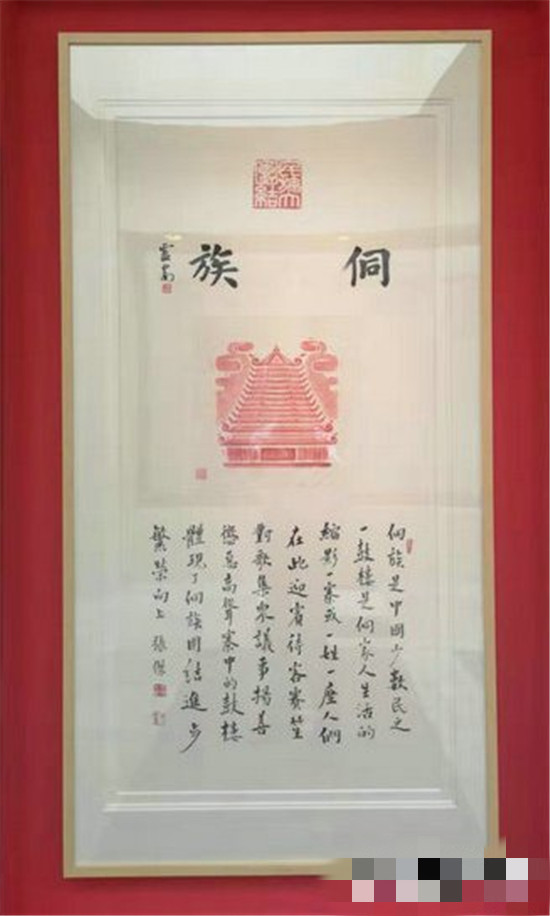 侗族
侗族是中國少數民之
一鼓樓是侗家人生活的
縮影一寨或一姓一座人們
在此迎賓待客賽笙
對歌集衆議事揚善
懲惡高聳寨中的鼓樓
體現了侗族團結進步
繁榮向上 張傑